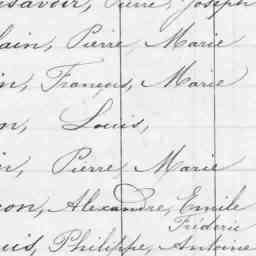 isavoir, Pierre, Joseph
lain, Pierre Marie
in, François, Marie
n, Louis,
in, Pierre, Marie
con, Alexandre, Emile
Fréderic
uis, Philippe, Antoine